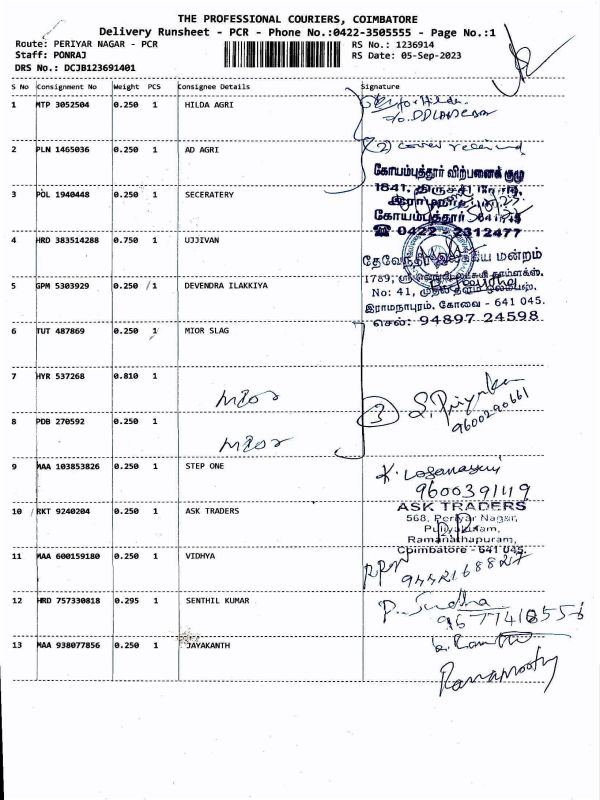 THE PROFESSIONAL COURIERS, COIMBATORE
Delivery Runsheet - PCR - Phone No.:0422-3505555 - Page No.:1
Route: PERIYAR NAGAR - PCR
RS No.: 1236914
Staff: PONRAJ
RS Date: 05-Sep-2023
DRS No.: DCJB123691401
S No Consignment No Weight PCS Consignee Details Signature
1 MTP 3052504 0.250 1 HILDA AGRI
2 PLN 1465036 0.250 1 AD AGRI (2) cover received
கோயம்புத்தூர் விற்பனைக் குழு
1841, திருச்சி ரோடு,
3 POL 1940448 0.250 1 SECERATERY
இராமநாதபுரம்
கோயம்புத்தூர் 641045
☎ 0422 - 2312477
4 HRD 383514288 0.750 1 UJJIVAN
மன்றம்
5 GPM 5303929 0.250 1 DEVENDRA ILAKKIYA
1789,
No: 41,
இராமநாபுரம், கோவை - 641 045.
செல்: 94897 24598
6 TUT 487869 0.250 1 MIOR SLAG
7 HYR 537268 0.810 1 MIOR
3 S. Priyanka
9600290661
8 PDB 270592 0.250 1 MIOR
9 MAA 103853826 0.250 1 STEP ONE
9600391119
10 RKT 9240204 0.250 1 ASK TRADERS
ASK TRADERS
568, Periyar Nagar,
Puliyakulam,
Ramanathapuram,
Coimbatore - 641 045.
11 MAA 600159180 0.250 1 VIDHYA
12 HRD 757330818 0.295 1 SENTHIL KUMAR
P. Sudha
13 MAA 938077856 0.250 1 JAYAKANTH
Ramamoorthy